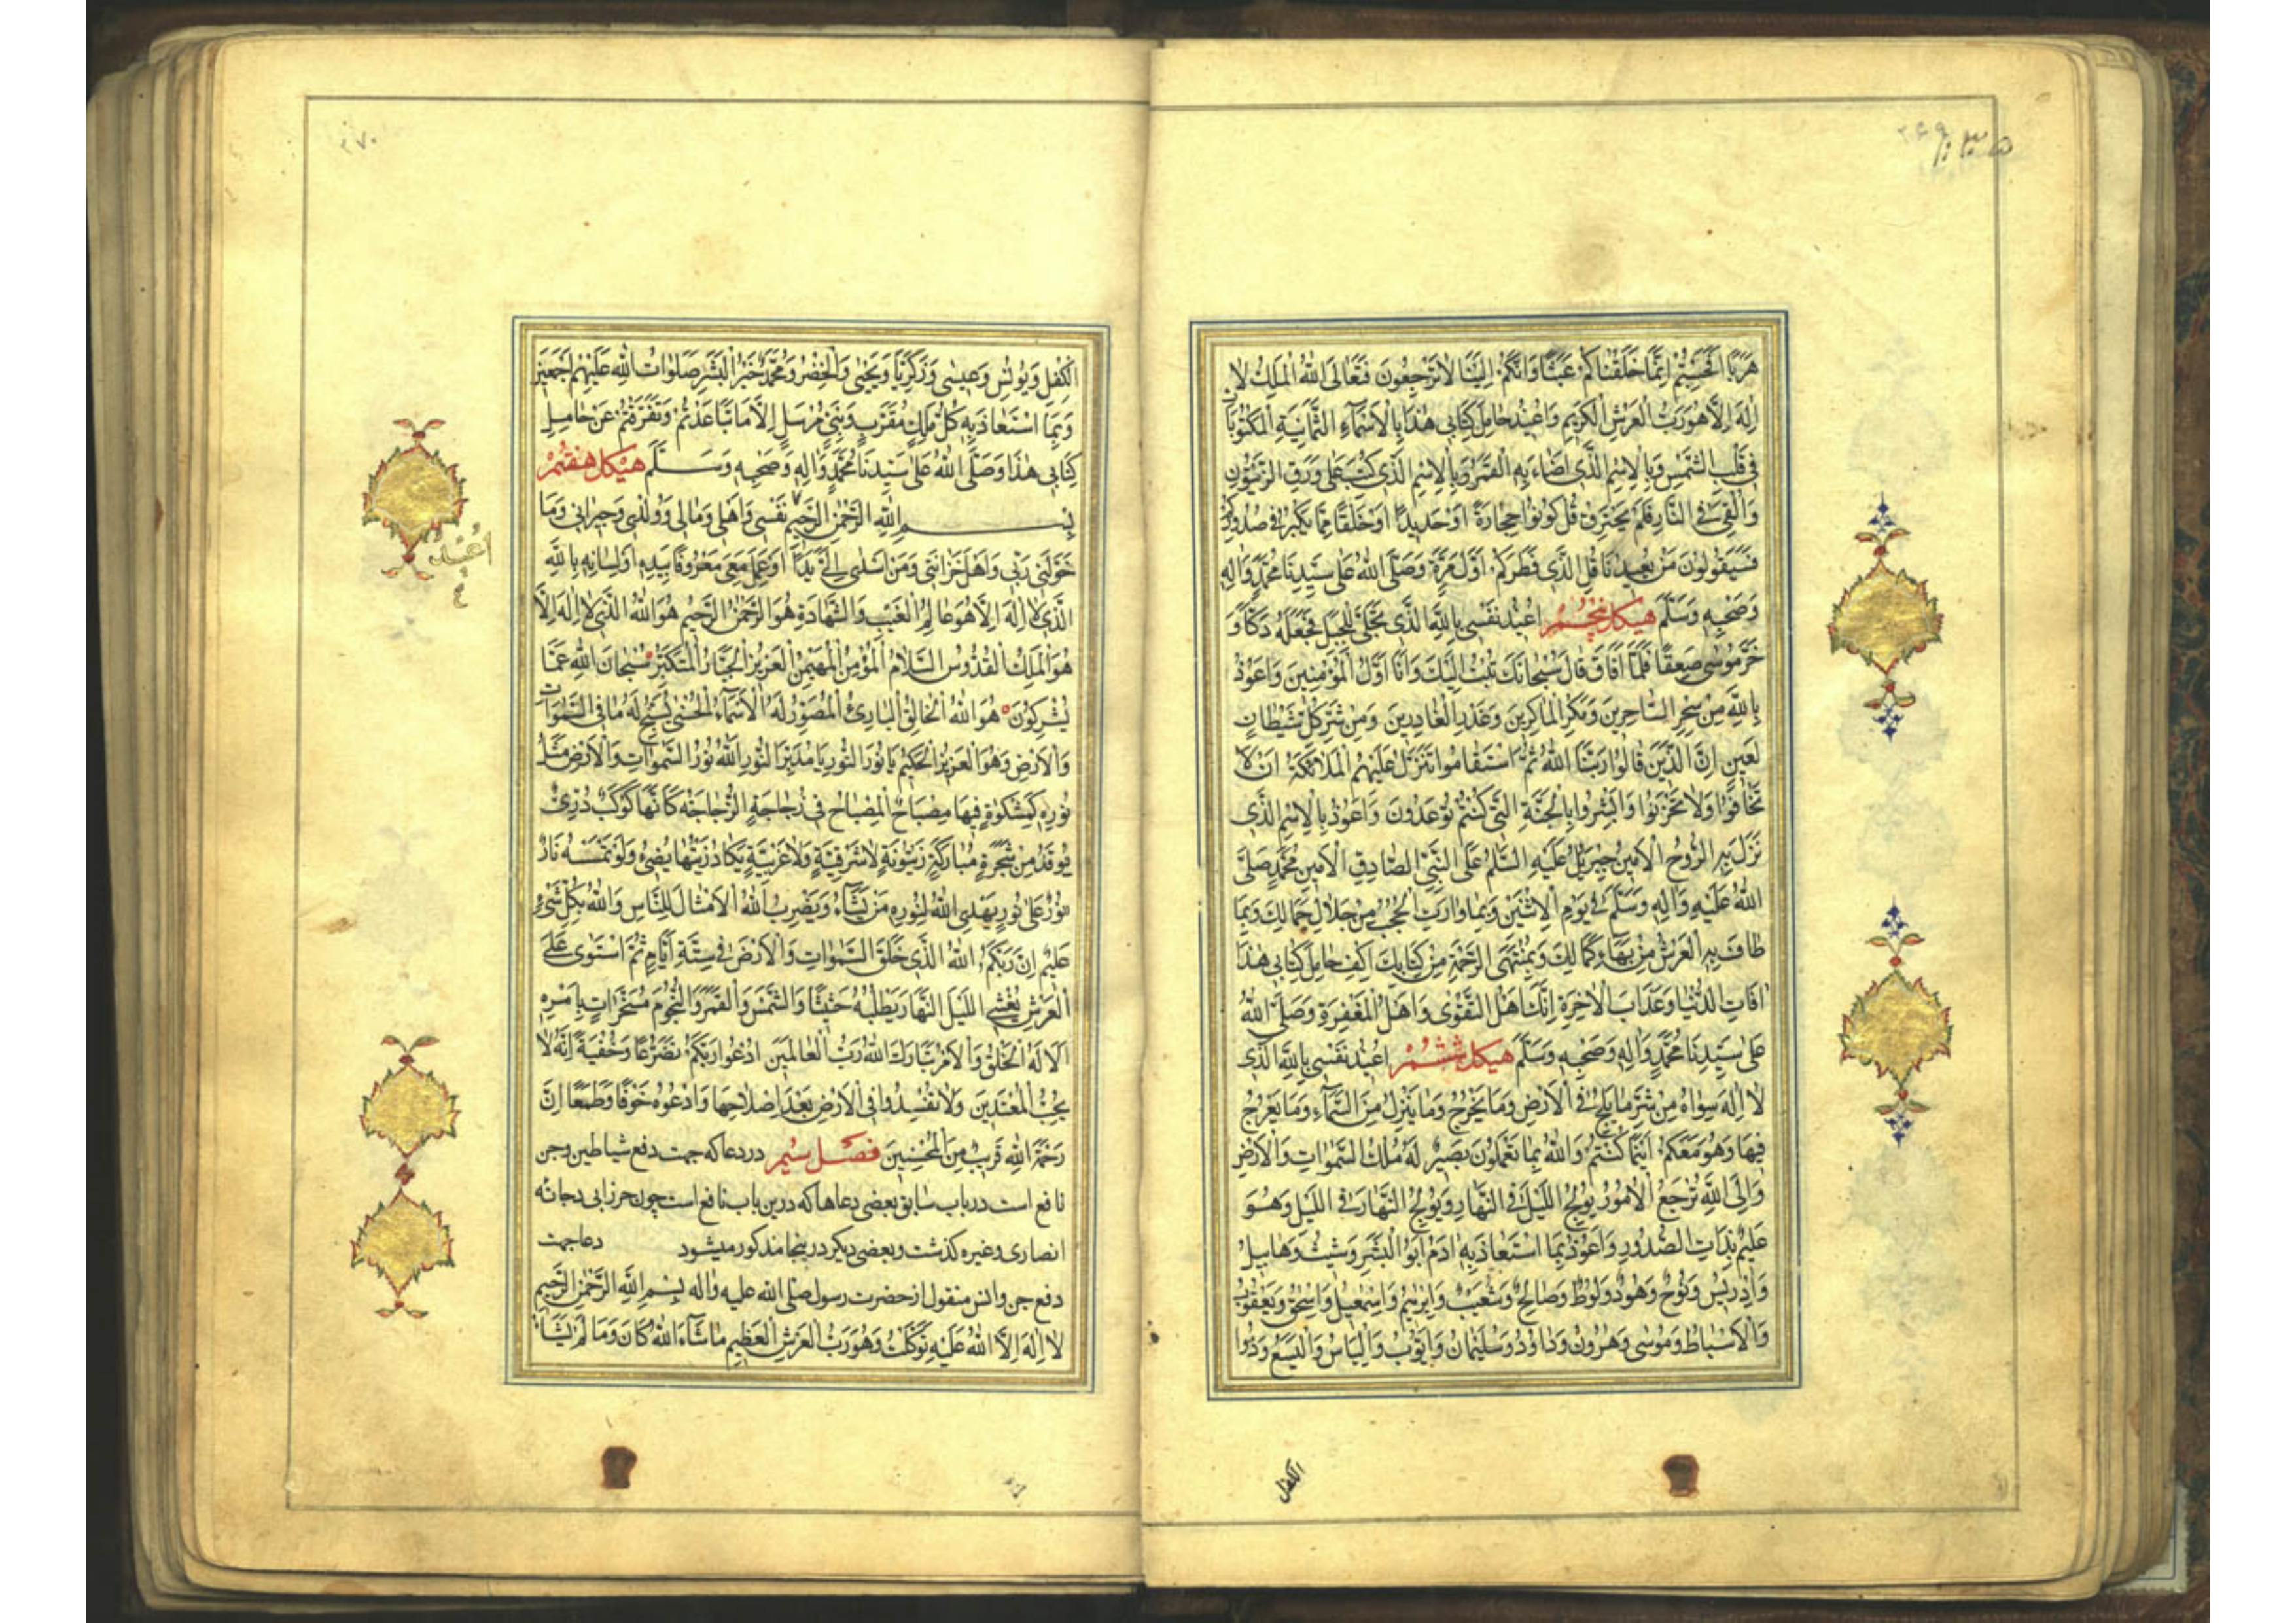 ۲۶۹
هَرَبًا اَفَحَسِبْتُمْ اِنَّمَا خَلَقْنَاكُمْ عَبَثًا وَاَنَّكُمْ اِلَيْنَا لَا تُرْجَعُونَ فَتَعَالَى اللّٰهُ الْمَلِكُ لا
اِلٰهَ اِلَّا هُوَ رَبُّ الْعَرْشِ الْكَرِيمِ وَاُعِيذُ حَامِلَ كِتَابِى هٰذَا بِالْاَسْمَاءِ الثَّمَانِيَةِ الْمَكْتُوبَاتِ
فِى قَلْبِ الشَّمْسِ وَبِالْاِسْمِ الَّذِى اَضَاءَ بِهِ الْقَمَرُ وَبِالْاِسْمِ الَّذِى كُتِبَ عَلَى وَرَقِ الزَّيْتُونِ
وَاُلْقِىَ فِى النَّارِ فَلَمْ يَحْتَرِقْ قُلْ كُونُوا حِجَارَةً اَوْ حَدِيدًا اَوْ خَلْقًا مِمَّا يَكْبُرُ فِى صُدُورِكُمْ
فَسَيَقُولُونَ مَنْ يُعِيدُنَا قُلِ الَّذِى فَطَرَكُمْ اَوَّلَ مَرَّةٍ وَصَلَّى اللّٰهُ عَلٰى سَيِّدِنَا مُحَمَّدٍ وَاٰلِهِ
وَصَحْبِهِ وَسَلَّمَ هيكل پنجم اُعِيذُ نَفْسِى بِاللّٰهِ الَّذِى تَجَلّٰى لِلْجَبَلِ فَجَعَلَهُ دَكًّا وَ
خَرَّ مُوسٰى صَعِقًا فَلَمَّا اَفَاقَ قَالَ سُبْحَانَكَ تُبْتُ اِلَيْكَ وَاَنَا اَوَّلُ الْمُؤْمِنِينَ وَاَعُوذُ
بِاللّٰهِ مِنْ سِحْرِ السَّاحِرِينَ وَمَكْرِ الْمَاكِرِينَ وَغَدْرِ الْغَادِرِينَ وَمِنْ شَرِّ كُلِّ شَيْطَانٍ
لَعِينٍ اِنَّ الَّذِينَ قَالُوا رَبُّنَا اللّٰهُ ثُمَّ اسْتَقَامُوا تَتَنَزَّلُ عَلَيْهِمُ الْمَلَائِكَةُ اَنْ لَا
تَخَافُوا وَلَا تَحْزَنُوا وَاَبْشِرُوا بِالْجَنَّةِ الَّتِى كُنْتُمْ تُوعَدُونَ وَاَعُوذُ بِالْاِسْمِ الَّذِى
نَزَلَ بِهِ الرُّوحُ الْاَمِينُ جِبْرِيلُ عَلَيْهِ السَّلٰمُ عَلَى النَّبِىِّ الصَّادِقِ الْاَمِينِ مُحَمَّدٍ صَلَّى
اللّٰهُ عَلَيْهِ وَاٰلِهِ وَسَلَّمَ فِى يَوْمِ الْاِثْنَيْنِ وَبِمَا وَارَتِ الْحُجُبُ مِنْ جَلَالِ جَمَالِكَ وَبِمَا
طَافَ بِهِ الْعَرْشُ مِنْ بَهَاءِ كَمَالِكَ وَبِمُنْتَهَى الرَّحْمَةِ مِنْ كِتَابِكَ اكْفِ حَامِلَ كِتَابِى هٰذَا
اٰفَاتِ الدُّنْيَا وَعَذَابَ الْاٰخِرَةِ اِنَّكَ اَهْلُ التَّقْوٰى وَاَهْلُ الْمَغْفِرَةِ وَصَلَّى اللّٰهُ
عَلٰى سَيِّدِنَا مُحَمَّدٍ وَاٰلِهِ وَصَحْبِهِ وَسَلَّمَ هيكل ششم اُعِيذُ نَفْسِى بِاللّٰهِ الَّذِى
لَا اِلٰهَ سِوَاهُ مِنْ شَرِّ مَا يَلِجُ فِى الْاَرْضِ وَمَا يَخْرُجُ وَمَا يَنْزِلُ مِنَ السَّمَاءِ وَمَا يَعْرُجُ
فِيهَا وَهُوَ مَعَكُمْ اَيْنَمَا كُنْتُمْ وَاللّٰهُ بِمَا تَعْمَلُونَ بَصِيرٌ لَهُ مُلْكُ السَّمٰوَاتِ وَالْاَرْضِ
وَاِلَى اللّٰهِ تُرْجَعُ الْاُمُورُ يُولِجُ اللَّيْلَ فِى النَّهَارِ وَيُولِجُ النَّهَارَ فِى اللَّيْلِ وَهُوَ
عَلِيمٌ بِذَاتِ الصُّدُورِ وَاَعُوذُ بِمَا اسْتَعَاذَ بِهِ اٰدَمُ اَبُو الْبَشَرِ وَشِيثُ وَهَابِيلُ
وَاِدْرِيسُ وَنُوحٌ وَهُودٌ وَلُوطٌ وَصَالِحٌ وَشُعَيْبٌ وَاِبْرٰهِيمُ وَاِسْمٰعِيلُ وَاِسْحٰقُ وَيَعْقُوبُ
وَالْاَسْبَاطُ وَمُوسٰى وَهٰرُونُ وَدَاوُدُ وَسُلَيْمَانُ وَاَيُّوبُ وَاِلْيَاسُ وَالْيَسَعُ وَذُوا
الکفل
۲۷۰
الْكِفْلِ وَيُونُسُ وَعِيسٰى وَزَكَرِيَّا وَيَحْيٰى وَالْخِضْرُ وَمُحَمَّدٌ خَيْرُ الْبَشَرِ صَلَوَاتُ اللّٰهِ عَلَيْهِمْ اَجْمَعِينَ
وَبِمَا اسْتَعَاذَ بِهِ كُلُّ مَلَكٍ مُقَرَّبٍ وَنَبِىٍّ مُرْسَلٍ اِلَّا مَا تَبَاعَدْتُمْ وَتَفَرَّقْتُمْ عَنْ حَامِلِ
كِتَابِى هٰذَا وَصَلَّى اللّٰهُ عَلٰى سَيِّدِنَا مُحَمَّدٍ وَاٰلِهِ وَصَحْبِهِ وَسَلَّمَ هيكل هفتم
بِسْمِ اللّٰهِ الرَّحْمٰنِ الرَّحِيمِ نَفْسِى وَاَهْلِى وَمَالِى وَوَلَدِى وَجِيرَانِى وَمَا
اعيذ
خَوَّلَنِى رَبِّى وَاَهْلَ خَزَانَتِى وَمَنْ اَسْدٰى اِلَىَّ يَدًا اَوْ عَمِلَ مَعِىَ مَعْرُوفًا بِيَدِهِ اَوْ لِسَانِهِ بِاللّٰهِ
الَّذِى لَا اِلٰهَ اِلَّا هُوَ عَالِمُ الْغَيْبِ وَالشَّهَادَةِ هُوَ الرَّحْمٰنُ الرَّحِيمُ هُوَ اللّٰهُ الَّذِى لَا اِلٰهَ اِلَّا
هُوَ الْمَلِكُ الْقُدُّوسُ السَّلَامُ الْمُؤْمِنُ الْمُهَيْمِنُ الْعَزِيزُ الْجَبَّارُ الْمُتَكَبِّرُ سُبْحَانَ اللّٰهِ عَمَّا
يُشْرِكُونَ هُوَ اللّٰهُ الْخَالِقُ الْبَارِئُ الْمُصَوِّرُ لَهُ الْاَسْمَاءُ الْحُسْنٰى يُسَبِّحُ لَهُ مَا فِى السَّمٰوَاتِ
وَالْاَرْضِ وَهُوَ الْعَزِيزُ الْحَكِيمُ يَا نُورَ النُّورِ يَا مُدَبِّرَ النُّورِ اللّٰهُ نُورُ السَّمٰوَاتِ وَالْاَرْضِ مَثَلُ
نُورِهِ كَمِشْكٰوةٍ فِيهَا مِصْبَاحٌ الْمِصْبَاحُ فِى زُجَاجَةٍ الزُّجَاجَةُ كَاَنَّهَا كَوْكَبٌ دُرِّىٌّ
يُوقَدُ مِنْ شَجَرَةٍ مُبَارَكَةٍ زَيْتُونَةٍ لَا شَرْقِيَّةٍ وَلَا غَرْبِيَّةٍ يَكَادُ زَيْتُهَا يُضِىءُ وَلَوْ لَمْ تَمْسَسْهُ نَارٌ
نُورٌ عَلٰى نُورٍ يَهْدِى اللّٰهُ لِنُورِهِ مَنْ يَشَاءُ وَيَضْرِبُ اللّٰهُ الْاَمْثَالَ لِلنَّاسِ وَاللّٰهُ بِكُلِّ شَىْءٍ
عَلِيمٌ اِنَّ رَبَّكُمُ اللّٰهُ الَّذِى خَلَقَ السَّمٰوَاتِ وَالْاَرْضَ فِى سِتَّةِ اَيَّامٍ ثُمَّ اسْتَوٰى عَلَى
الْعَرْشِ يُغْشِى اللَّيْلَ النَّهَارَ يَطْلُبُهُ حَثِيثًا وَالشَّمْسَ وَالْقَمَرَ وَالنُّجُومَ مُسَخَّرَاتٍ بِاَمْرِهِ
اَلَا لَهُ الْخَلْقُ وَالْاَمْرُ تَبَارَكَ اللّٰهُ رَبُّ الْعَالَمِينَ ادْعُوا رَبَّكُمْ تَضَرُّعًا وَخُفْيَةً اِنَّهُ لَا
يُحِبُّ الْمُعْتَدِينَ وَلَا تُفْسِدُوا فِى الْاَرْضِ بَعْدَ اِصْلَاحِهَا وَادْعُوهُ خَوْفًا وَطَمَعًا اِنَّ
رَحْمَةَ اللّٰهِ قَرِيبٌ مِنَ الْمُحْسِنِينَ فصل سيم در دعا که جهت دفع شیاطین و جن
نافع است در باب سابق بعضی دعاها که درین باب نافع است چون حرز ابی دجانه
انصاری و غیره گذشت و بعضی دیگر در اینجا مذکور میشود دعا جهت
دفع جن و انس منقول از حضرت رسول صلی الله علیه و اله بِسْمِ اللّٰهِ الرَّحْمٰنِ الرَّحِيمِ
لَا اِلٰهَ اِلَّا اللّٰهُ عَلَيْهِ تَوَكَّلْتُ وَهُوَ رَبُّ الْعَرْشِ الْعَظِيمِ مَا شَاءَ اللّٰهُ كَانَ وَمَا لَمْ يَشَاْ